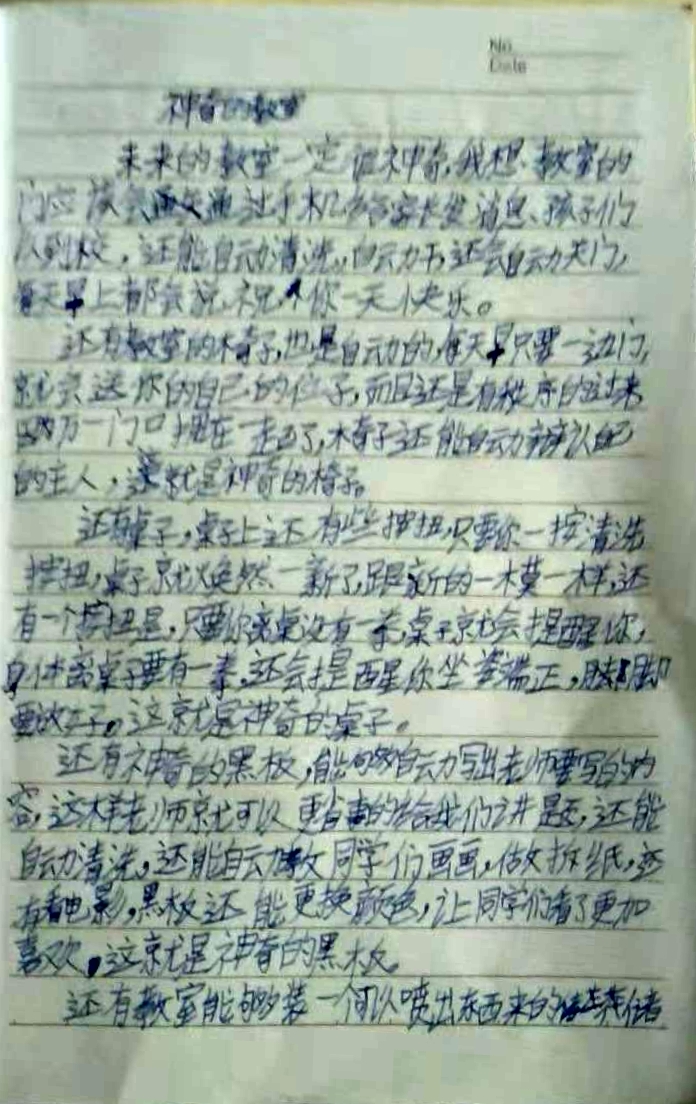 No
Date
神奇的教室
未来的教室一定很神奇,我想教室的
门应该会通过手机给家长发消息,孩子们
到校,还能自动清洗,自动开,还会自动关门,
每天早上都会说:祝你一天快乐。
还有教室的椅子,也是自动的,每天早只要一进门,
就会送你的自己的位子,而且还是有秩序的过来
万一门口拥在一起了,椅子还能自动辨认自己
的主人,这就是神奇的椅子。
还有桌子,桌子上还有些按扭,只要你一按清洗
按扭,桌子就焕然一新了,跟新的一模一样,还
有一个按扭是,只要你离桌没有一拳,桌子就会提醒你,
身体离桌子要有一拳,还会提醒你坐姿端正,脚
要放正。这就是神奇的桌子。
还有神奇的黑板,能够自动写出老师要写的内
容,这样老师就可以更省事的给我们讲题,还能
自动清洗,还能自动教同学们画画,做折纸,还
有看电影,黑板还能更换颜色,让同学们看了更加
喜欢,这就是神奇的黑板。
还有教室能够装一个可以喷出东西来的